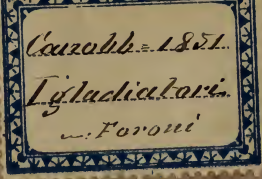 Carobb = 1851.
I gladiatori.
m. Foroni